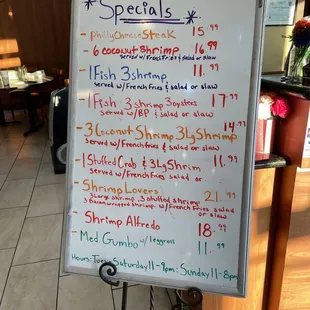 *Specials*
- Philly Cheese Steak 15.99
- 6 coconut Shrimp 16.99
Served w/
& salad or slaw
- 1 Fish 3 shrimp 11.99
Served w/French Fries & salad or slaw
- 1 Fish 3 shrimp 3 oysters 17.99
Served w/BP & salad or slaw
- 3 Coconut Shrimp 3 Lg Shrimp 14.93
Served w/French Fries & salad or slaw
- 1 Stuffed Crab & 3 Lg Shrim 11.99
Served w/ French Fries salad or
- Shrimp Lovers 21.99
3 Large shrimp, 3 stuffed shrimp
3 Bacon wrapped shrimp w/French Fries salad or slaw
- Shrimp Alfredo 18.99
- Med. Gumbo w/ 11.99
Hours: Saturday 11-9pm: Sunday 11-8pm